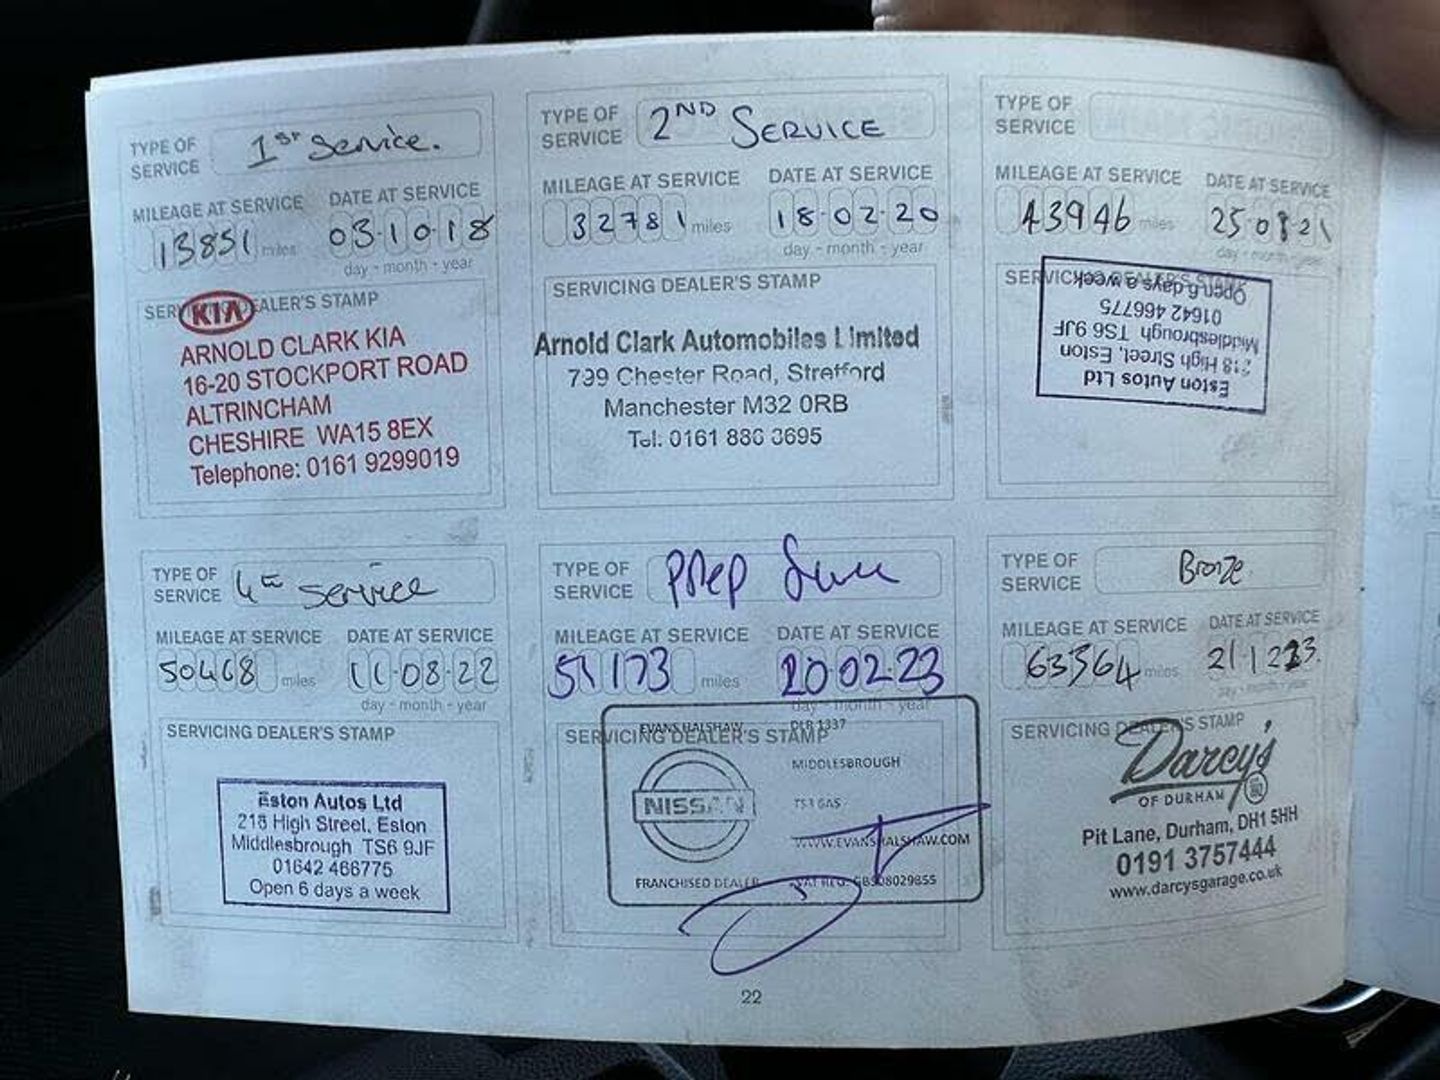 TYPE OF SERVICE 1st Service.
MILEAGE AT SERVICE DATE AT SERVICE
13851 miles 03·10·18
day - month - year
SERVICING DEALER'S STAMP
KIA
ARNOLD CLARK KIA
16-20 STOCKPORT ROAD
ALTRINCHAM
CHESHIRE WA15 8EX
Telephone: 0161 9299019
TYPE OF SERVICE 2ND SERVICE
MILEAGE AT SERVICE DATE AT SERVICE
32781 miles 18·02·20
day - month - year
SERVICING DEALER'S STAMP
Arnold Clark Automobiles Limited
799 Chester Road, Stretford
Manchester M32 0RB
Tel: 0161 886 3695
TYPE OF SERVICE
MILEAGE AT SERVICE DATE AT SERVICE
43946 miles 25·08·21
day - month - year
SERVICING DEALER'S STAMP
Eston Autos Ltd
218 High Street, Eston
Middlesbrough TS6 9JF
01642 466775
Open 6 days a week
TYPE OF SERVICE 4th Service
MILEAGE AT SERVICE DATE AT SERVICE
50468 miles 11·08·22
day - month - year
SERVICING DEALER'S STAMP
Eston Autos Ltd
218 High Street, Eston
Middlesbrough TS6 9JF
01642 466775
Open 6 days a week
TYPE OF SERVICE PREP
MILEAGE AT SERVICE DATE AT SERVICE
51173 miles 20·02·23
day - month - year
SERVICING DEALER'S STAMP
EVANS HALSHAW DLR 1337
MIDDLESBROUGH
NISSAN
WWW.EVANSHALSHAW.COM
FRANCHISED DEALER VAT REG:
TYPE OF SERVICE Bronze
MILEAGE AT SERVICE DATE AT SERVICE
63364 miles
day - month - year
SERVICING DEALER'S STAMP
Darcy's
OF DURHAM
Pit Lane, Durham, DH1 5HH
0191 3757444
www.darcysgarage.co.uk
22